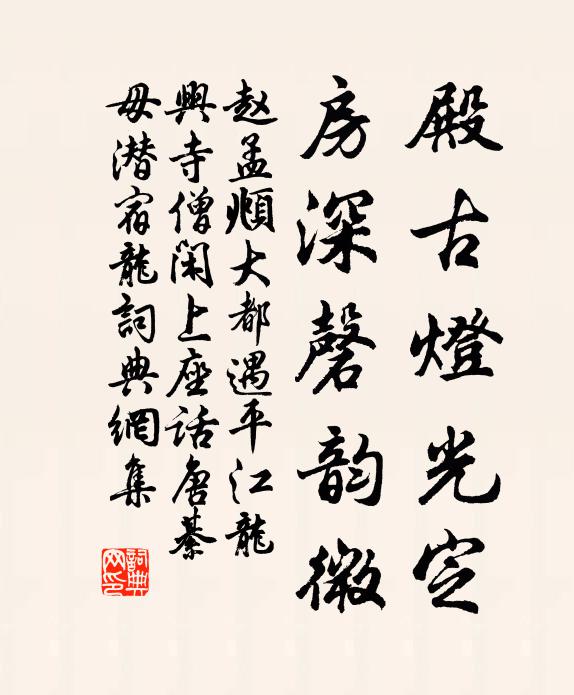 殿古燈光定
房深磬韵微
赵孟頫大都遇平江龍
興寺僧閑上座話唐綦
毋潛宿龍詞典網集
詞典網印